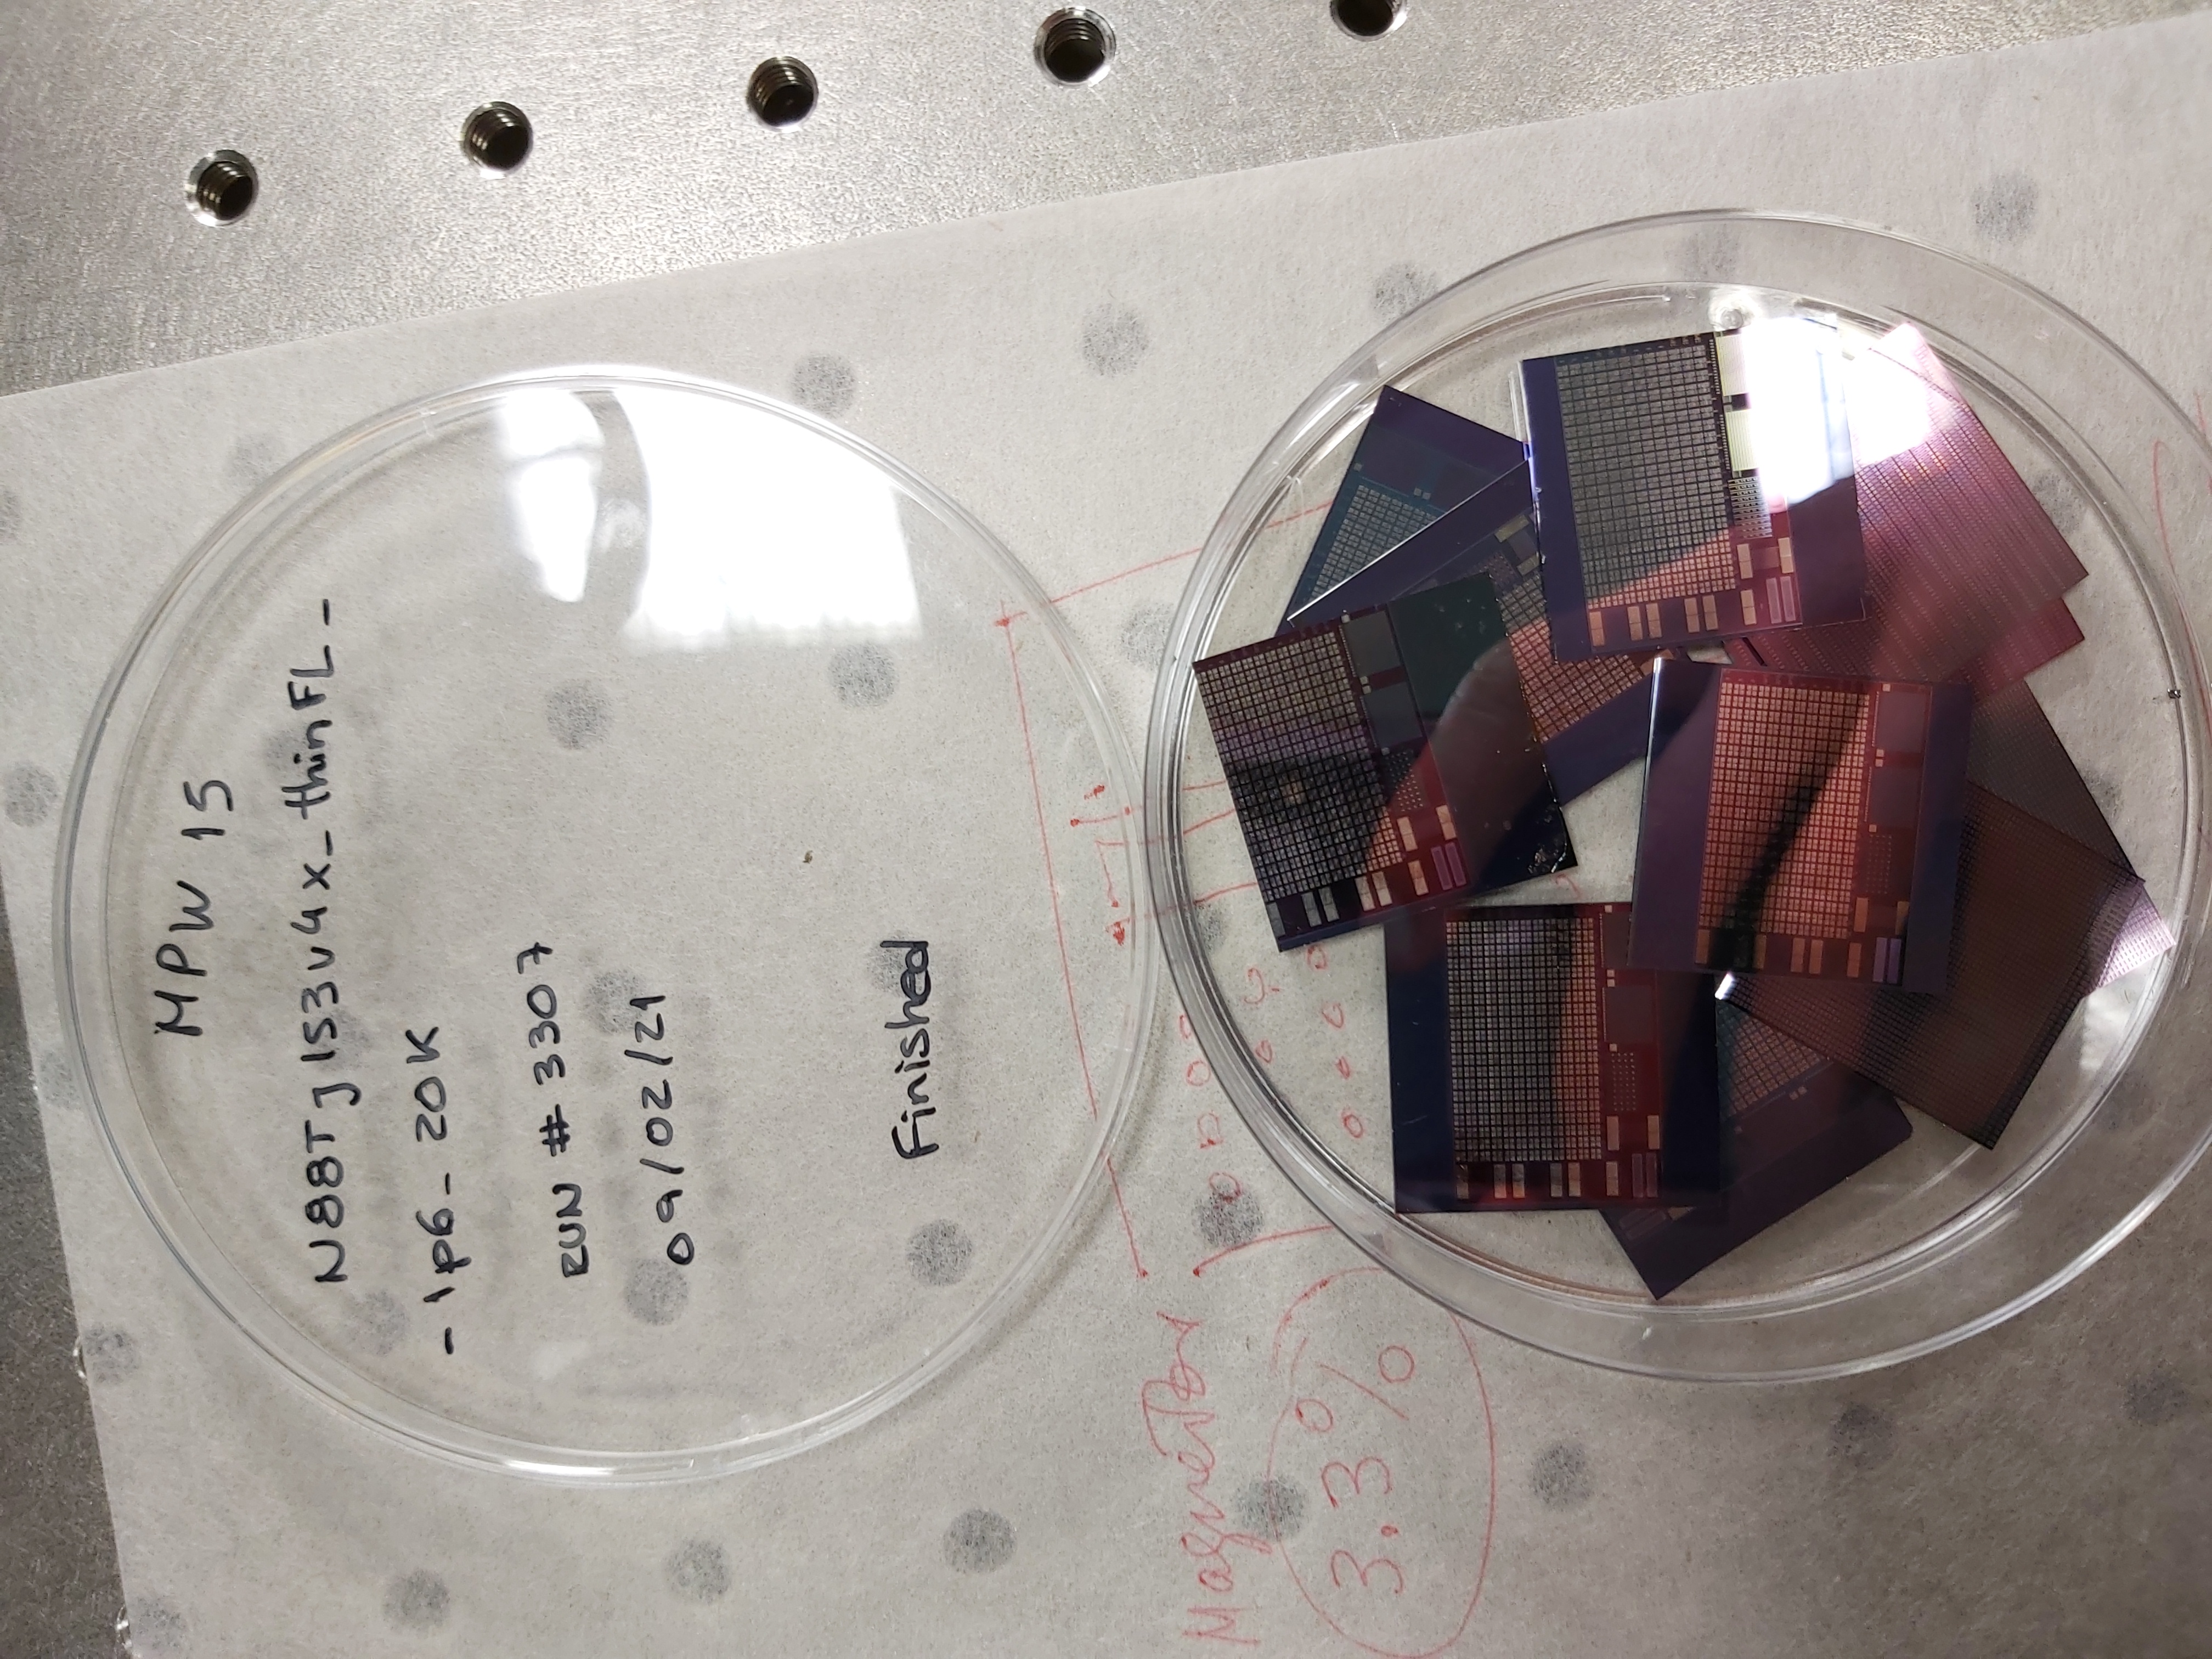 MPW 15
N88Tj153v4x_thinFL_
-1p6_20K
RUN # 3307
09/02/21
Finished
Magnetron
3.3%